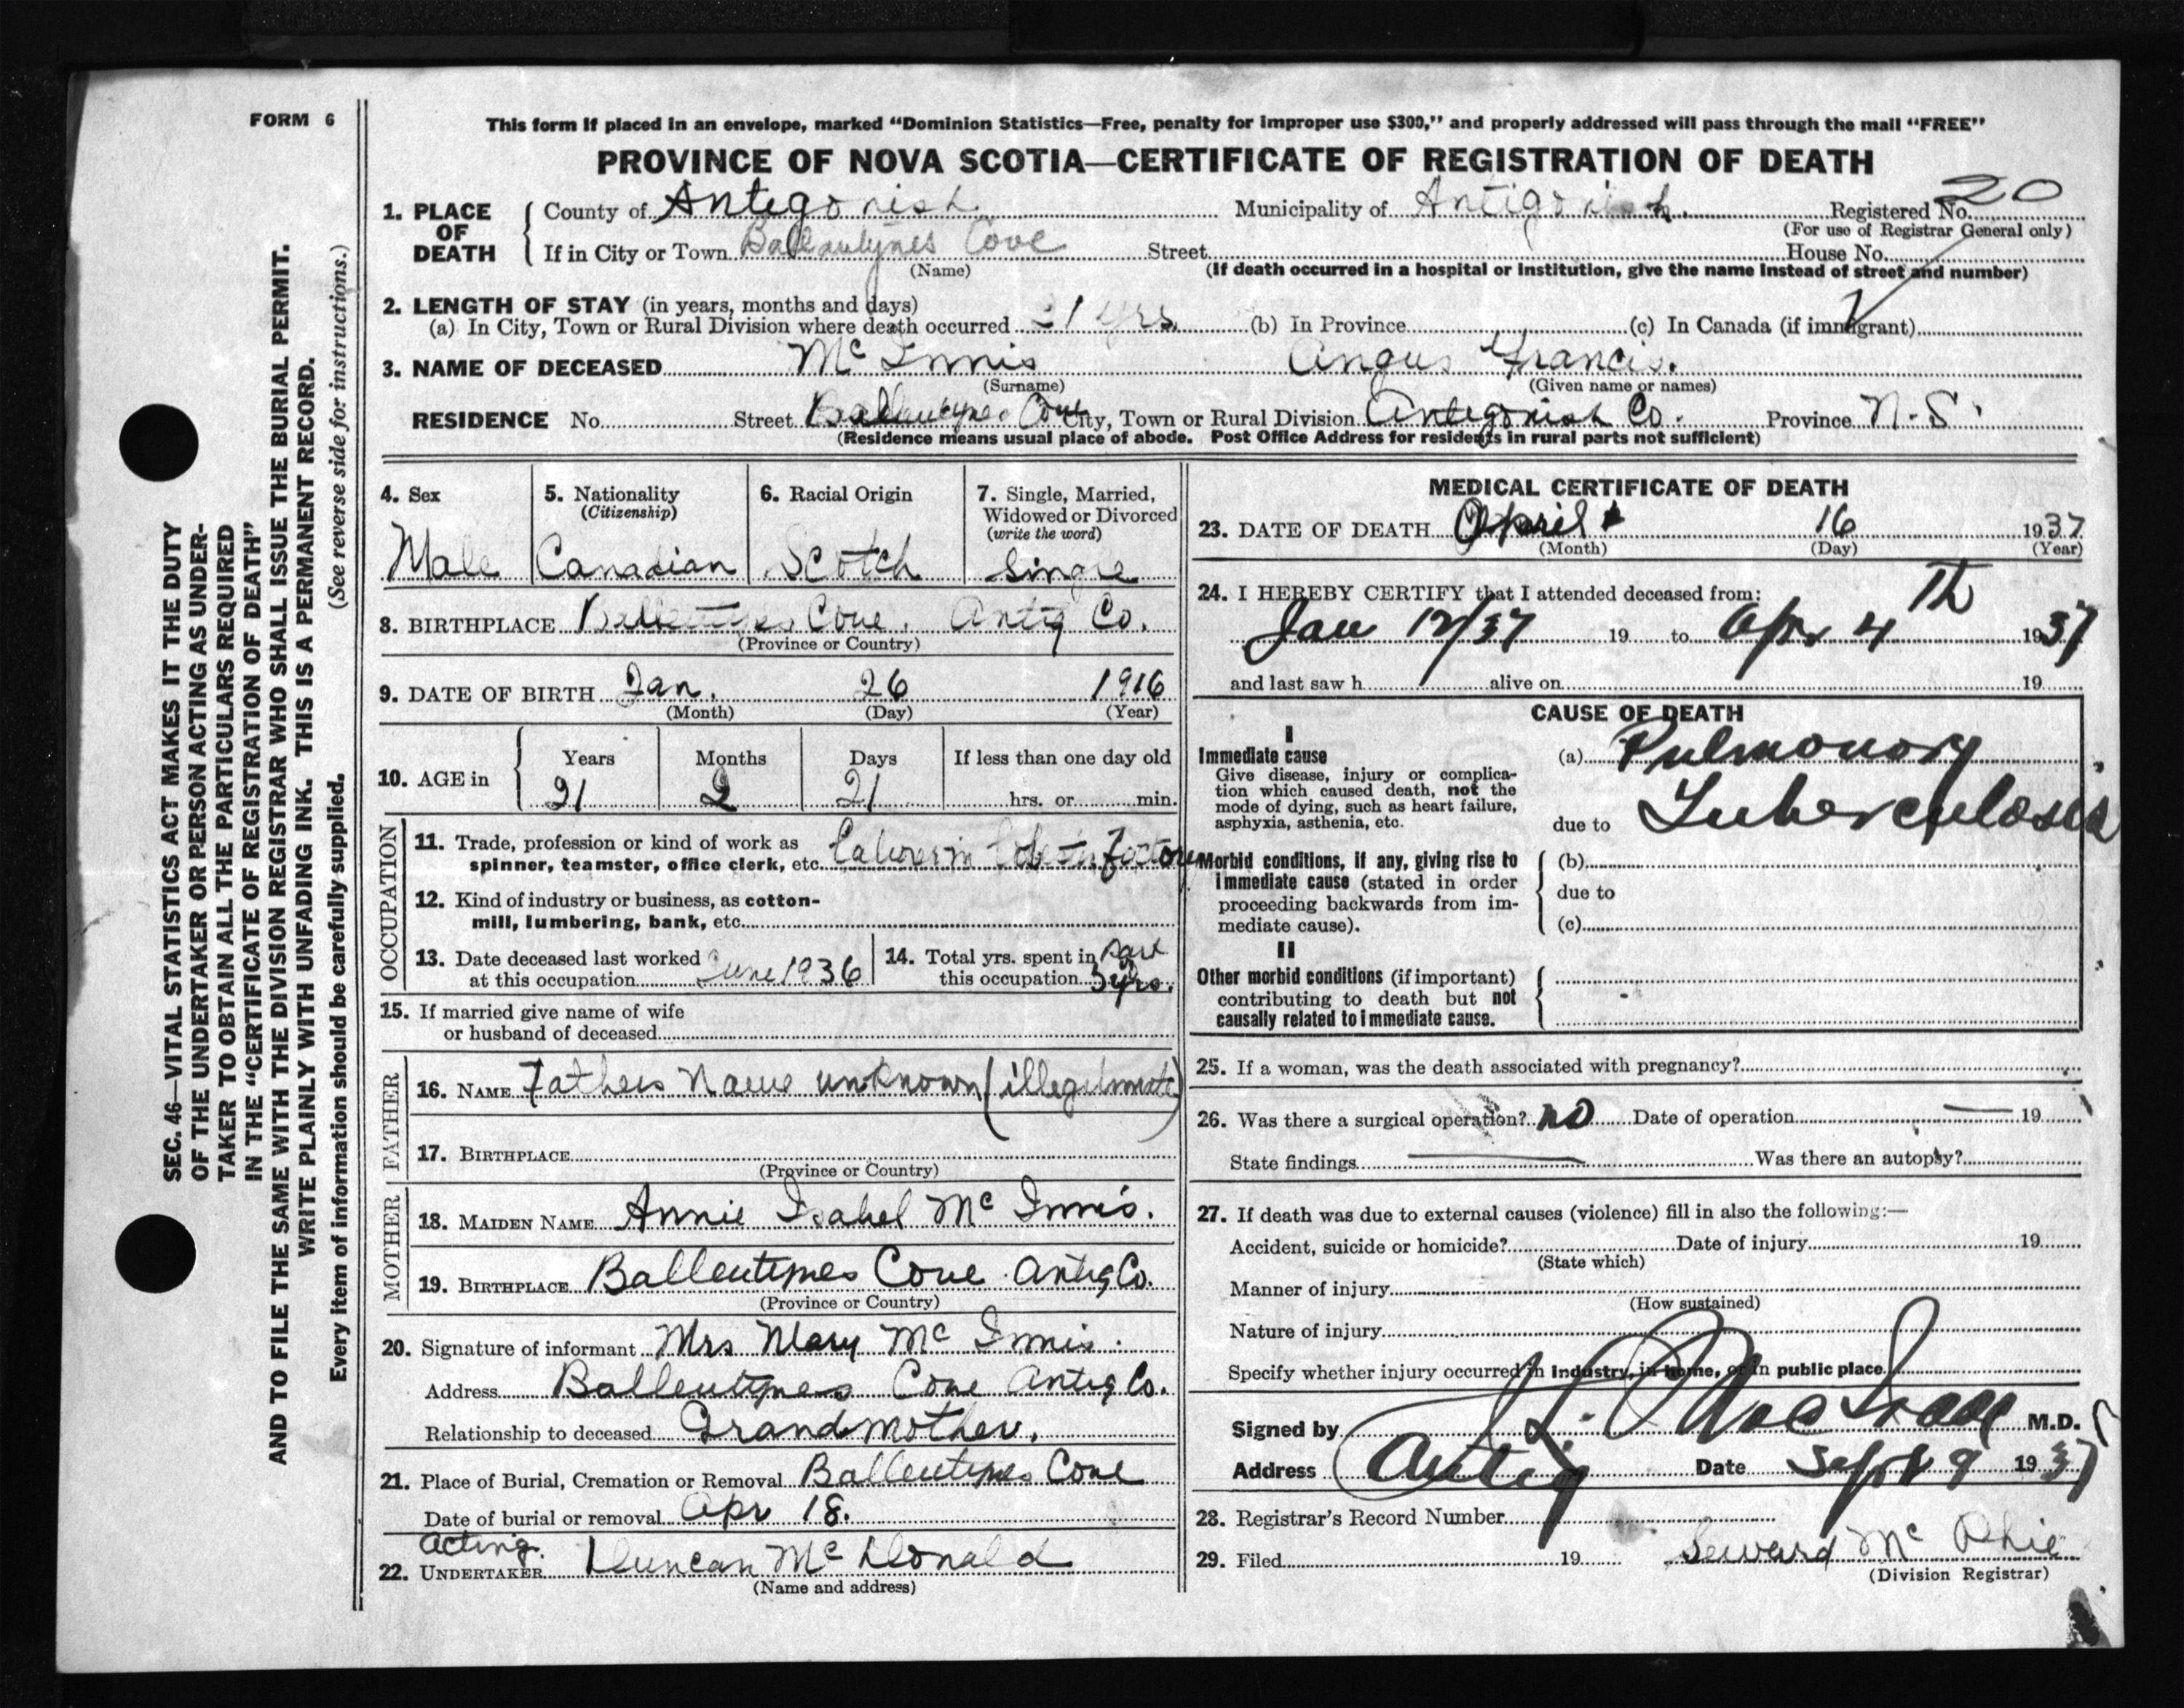 FORM 6
This form if placed in an envelope, marked “Dominion Statistics—Free, penalty for improper use $300,” and properly addressed will pass through the mail “FREE”
PROVINCE OF NOVA SCOTIA—CERTIFICATE OF REGISTRATION OF DEATH
1. PLACE OF DEATH
County of Antigonish Municipality of Antigonish. Registered No. 20
(For use of Registrar General only)
If in City or Town Ballantynes Cove Street House No.
(Name) (If death occurred in a hospital or institution, give the name instead of street and number)
2. LENGTH OF STAY (in years, months and days)
(a) In City, Town or Rural Division where death occurred 21 yrs. (b) In Province (c) In Canada (if immigrant)
3. NAME OF DECEASED Mc Innis Angus Francis.
(Surname) (Given name or names)
RESIDENCE No. Street Ballentynes Cove City, Town or Rural Division Antigonish Co. Province N.S.
(Residence means usual place of abode. Post Office Address for residents in rural parts not sufficient)
4. Sex
Male
5. Nationality
(Citizenship)
Canadian
6. Racial Origin
Scotch
7. Single, Married,
Widowed or Divorced
(write the word)
Single
8. BIRTHPLACE Ballentynes Cove. Antig Co.
(Province or Country)
9. DATE OF BIRTH Jan. 26 1916
(Month) (Day) (Year)
10. AGE in
Years Months Days If less than one day old
21 2 21 hrs. or min.
OCCUPATION
11. Trade, profession or kind of work as
spinner, teamster, office clerk, etc. Laborer in Lobster Factory
12. Kind of industry or business, as cotton-
mill, lumbering, bank, etc.
13. Date deceased last worked
at this occupation June 1936
14. Total yrs. spent in part
this occupation 3 yrs.
15. If married give name of wife
or husband of deceased
FATHER
16. NAME Fathers Name unknown (illegitimate)
17. BIRTHPLACE
(Province or Country)
MOTHER
18. MAIDEN NAME Annie Isabel Mc Innis.
19. BIRTHPLACE Ballentynes Cove Antig Co.
(Province or Country)
20. Signature of informant Mrs Mary Mc Innis.
Address Ballentynes Cove Antig Co.
Relationship to deceased Grandmother.
21. Place of Burial, Cremation or Removal Ballentynes Cove
Date of burial or removal Apr 18.
Acting.
22. UNDERTAKER Duncan Mc Donald
(Name and address)
MEDICAL CERTIFICATE OF DEATH
23. DATE OF DEATH April 16 1937
(Month) (Day) (Year)
24. I HEREBY CERTIFY that I attended deceased from:
Jan 12/37 19 to Apr 4 Th 1937
and last saw h alive on 19
CAUSE OF DEATH
I
Immediate cause
Give disease, injury or complica-
tion which caused death, not the
mode of dying, such as heart failure,
asphyxia, asthenia, etc.
(a) Pulmonory
due to Tuberculosis
Morbid conditions, if any, giving rise to
immediate cause (stated in order
proceeding backwards from im-
mediate cause).
(b)
due to
(c)
II
Other morbid conditions (if important)
contributing to death but not
causally related to immediate cause.
25. If a woman, was the death associated with pregnancy?
26. Was there a surgical operation? no Date of operation — 19
State findings — Was there an autopsy?
27. If death was due to external causes (violence) fill in also the following:—
Accident, suicide or homicide? Date of injury 19
(State which)
Manner of injury
(How sustained)
Nature of injury
Specify whether injury occurred in industry, in home, or in public place.
Signed by M.D.
Address Antig Date Sept 9 1937
28. Registrar's Record Number
29. Filed 19 Seward Mc Phie
(Division Registrar)
SEC. 46—VITAL STATISTICS ACT MAKES IT THE DUTY
OF THE UNDERTAKER OR PERSON ACTING AS UNDER-
TAKER TO OBTAIN ALL THE PARTICULARS REQUIRED
IN THE “CERTIFICATE OF REGISTRATION OF DEATH”
AND TO FILE THE SAME WITH THE DIVISION REGISTRAR WHO SHALL ISSUE THE BURIAL PERMIT.
WRITE PLAINLY WITH UNFADING INK. THIS IS A PERMANENT RECORD.
Every item of information should be carefully supplied. (See reverse side for instructions.)